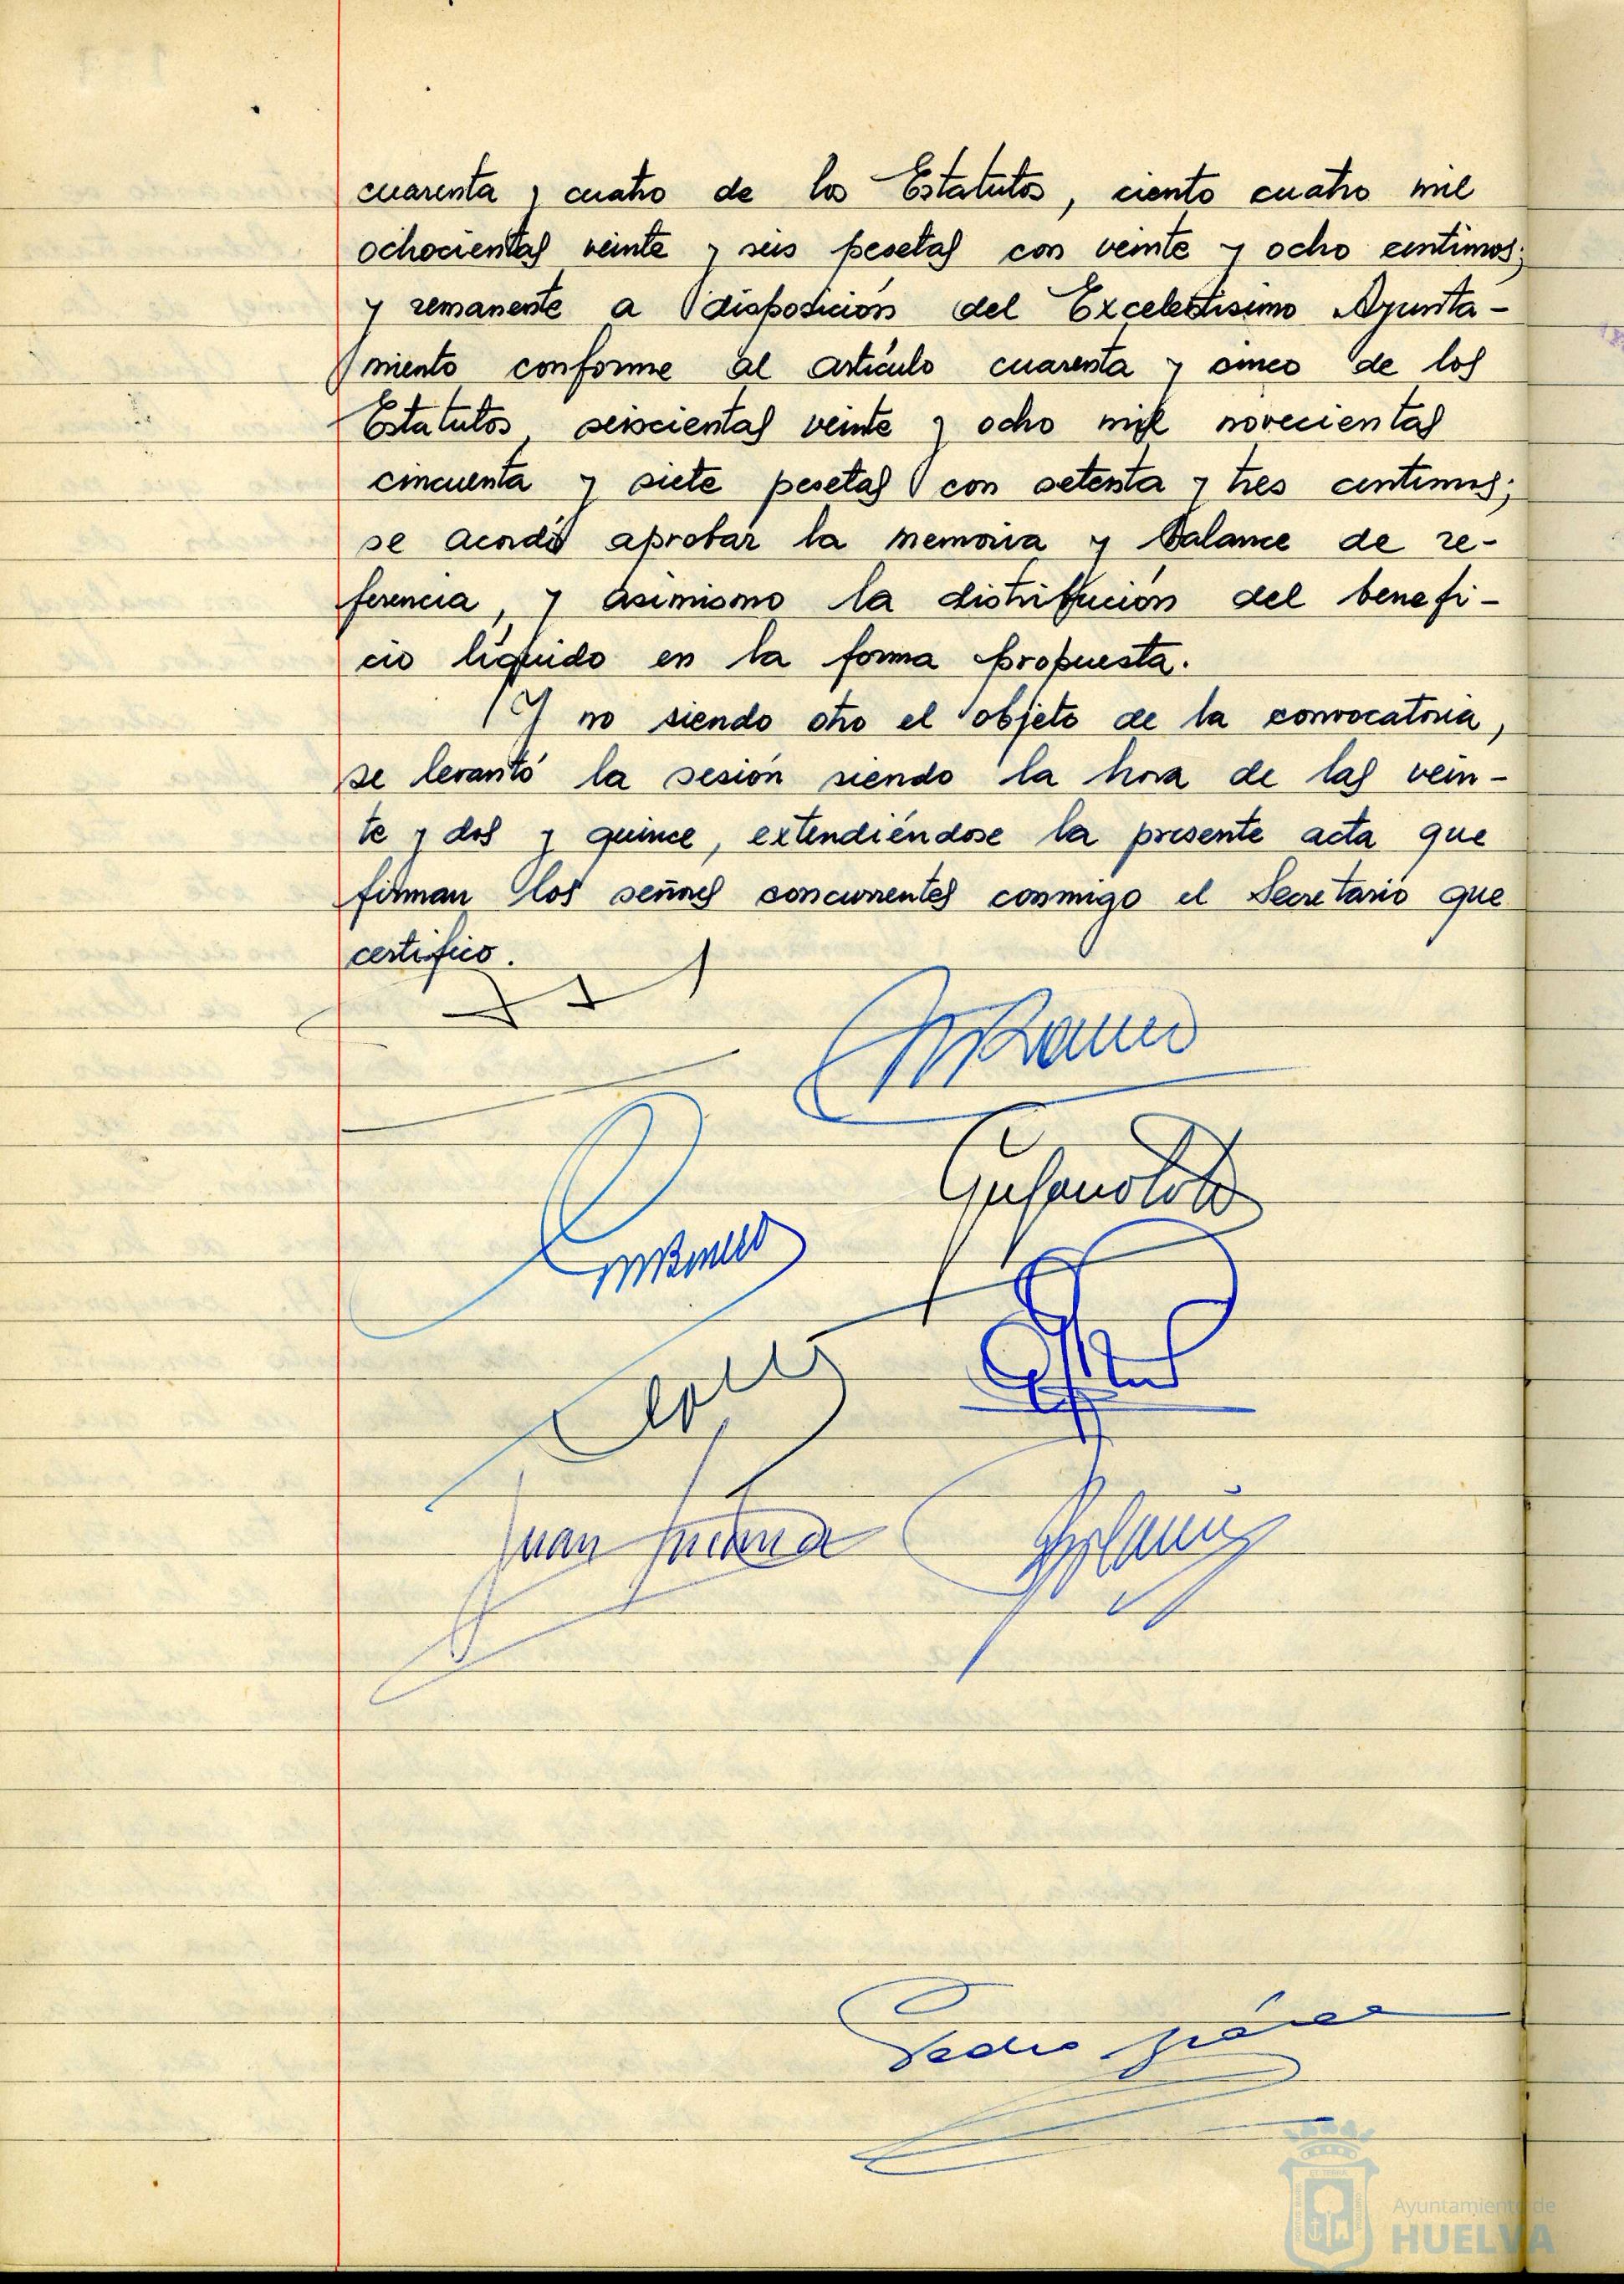 cuarenta y cuatro de los Estatutos, ciento cuatro mil
ochocientas veinte y seis pesetas con veinte y ocho centimos;
y remanente a disposición del Excelentisimo Ayunta-
miento conforme al artículo cuarenta y cinco de los
Estatutos, seiscientas veinte y ocho mil novecientas
cincuenta y siete pesetas con setenta y tres centimos;
se acordó aprobar la memoria y balance de re-
ferencia, y asimismo la distribución del benefi-
cio líquido en la forma propuesta.
Y no siendo otro el objeto de la convocatoria,
se levantó la sesión siendo la hora de las vein-
te y dos y quince, extendiéndose la presente acta que
firman los señores concurrentes conmigo el Secretario que
certifico.
Juan
Pedro
Ayuntamiento de
HUELVA